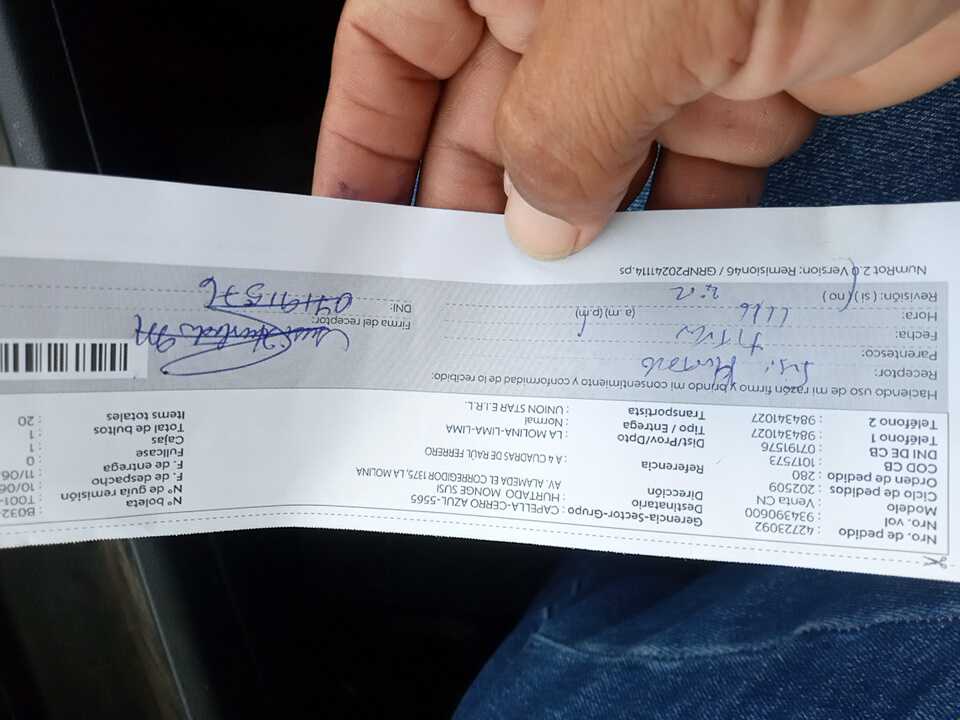 Nro. de pedido : 42723092
Nro. vol : 934390600
Modelo : Venta CN
Ciclo de pedidos : 202509
Orden de pedido : 280
COD CB : 1017573
DNI DE CB : 07191576
Teléfono 1 : 984341027
Teléfono 2 : 984341027
Gerencia-Sector-Grupo : CAPELLA-CERRO AZUL-5565
Destinatario : HURTADO MONGE SUSI
Dirección : AV. ALAMEDA EL CORREGIDOR 1375, LA MOLINA
Referencia : A 4 CUADRAS DE RAÚL FERRERO
Dist/Prov/Dpto : LA MOLINA-LIMA-LIMA
Tipo / Entrega : Normal
Transportista : UNION STAR E.I.R.L.
N° boleta : B032-
N° de guía remisión : T001-
F. de despacho : 10/06
F. de entrega : 11/06
Fullcase : 0
Cajas : 1
Total de bultos : 1
Items totales : 20
Haciendo uso de mi razón firmo y brindo mi consentimiento y conformidad de lo recibido:
Receptor: Susi Hurtado
Parentesco:
Fecha:
Hora: (a.m) (p.m)
Revisión: ( si ) ( no )
Firma del receptor:
DNI: 07191576
NumRot 2.0 Version: Remision46 / GRNP20241114.ps